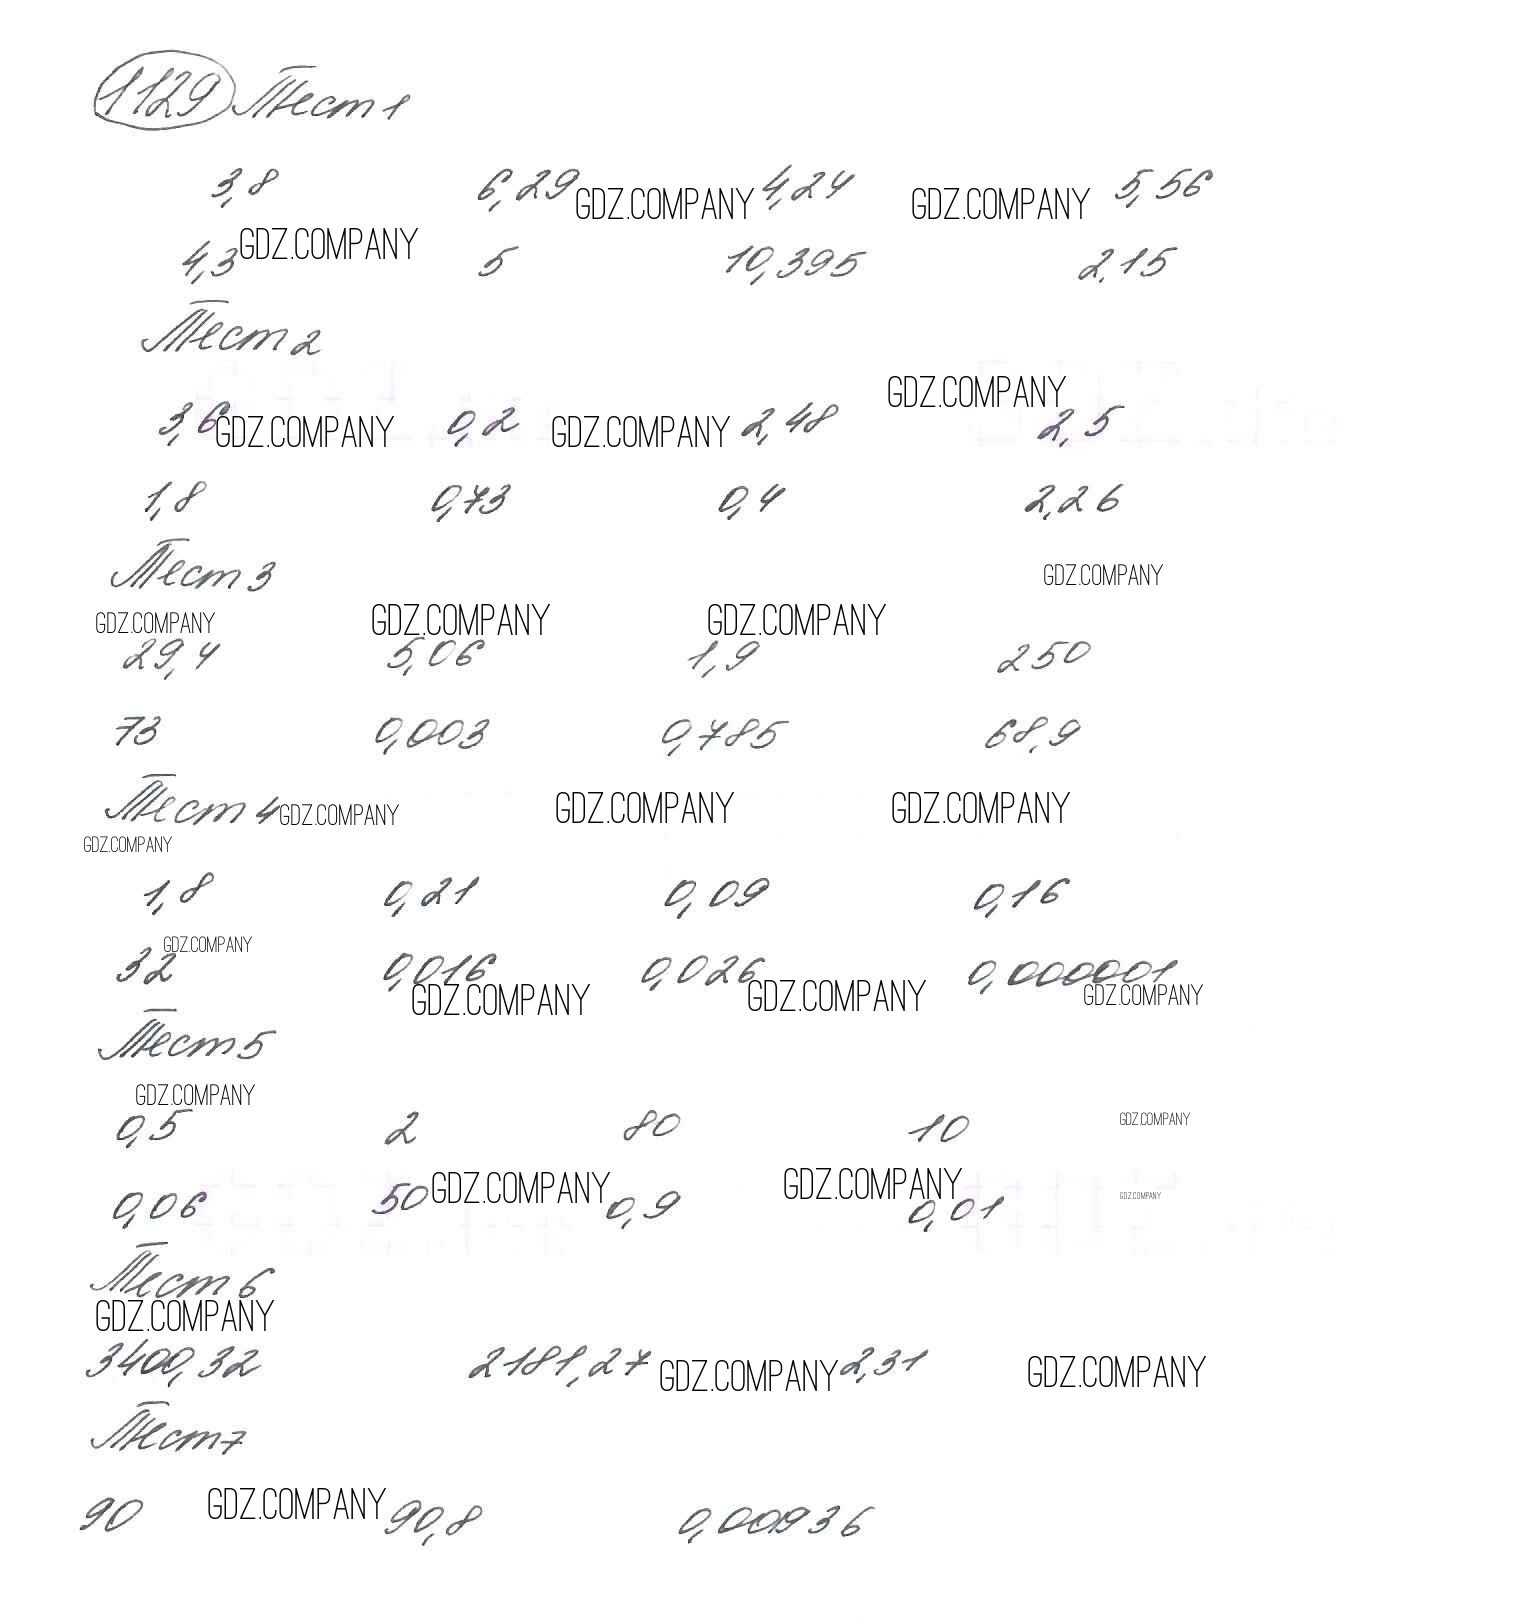 1129 Тест 1
3,8 6,29 GDZ.COMPANY 4,24 GDZ.COMPANY 5,56
4,3 GDZ.COMPANY 5 10,395 2,15
Тест 2
GDZ.COMPANY
3,6 GDZ.COMPANY 0,2 GDZ.COMPANY 2,48 2,5
1,8 0,73 0,4 2,26
Тест 3 GDZ.COMPANY
GDZ.COMPANY GDZ.COMPANY GDZ.COMPANY
29,4 5,06 1,9 250
73 0,003 0,785 68,9
Тест 4 GDZ.COMPANY GDZ.COMPANY GDZ.COMPANY
GDZ.COMPANY
1,8 0,21 0,09 0,16
GDZ.COMPANY
32 0,016 0,026 0,000001
GDZ.COMPANY GDZ.COMPANY GDZ.COMPANY
Тест 5
GDZ.COMPANY
0,5 2 80 10 GDZ.COMPANY
0,06 50 GDZ.COMPANY 0,9 GDZ.COMPANY 0,01 GDZ.COMPANY
Тест 6
GDZ.COMPANY
3400,32 2181,27 GDZ.COMPANY 2,31 GDZ.COMPANY
Тест 7
90 GDZ.COMPANY 90,8 0,00936